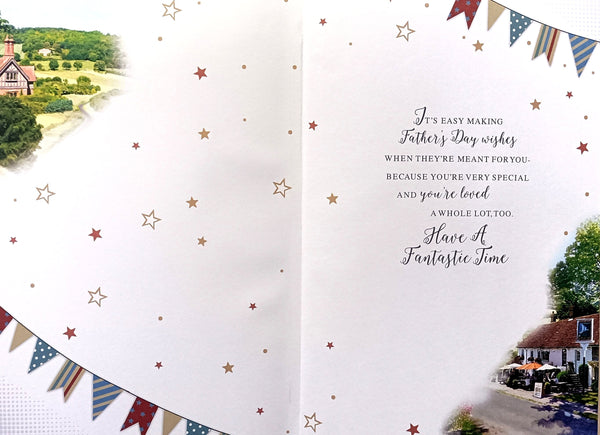 IT'S EASY MAKING
Father's Day wishes
WHEN THEY'RE MEANT FOR YOU-
BECAUSE YOU'RE VERY SPECIAL
AND you're loved
A WHOLE LOT, TOO.
Have A
Fantastic Time